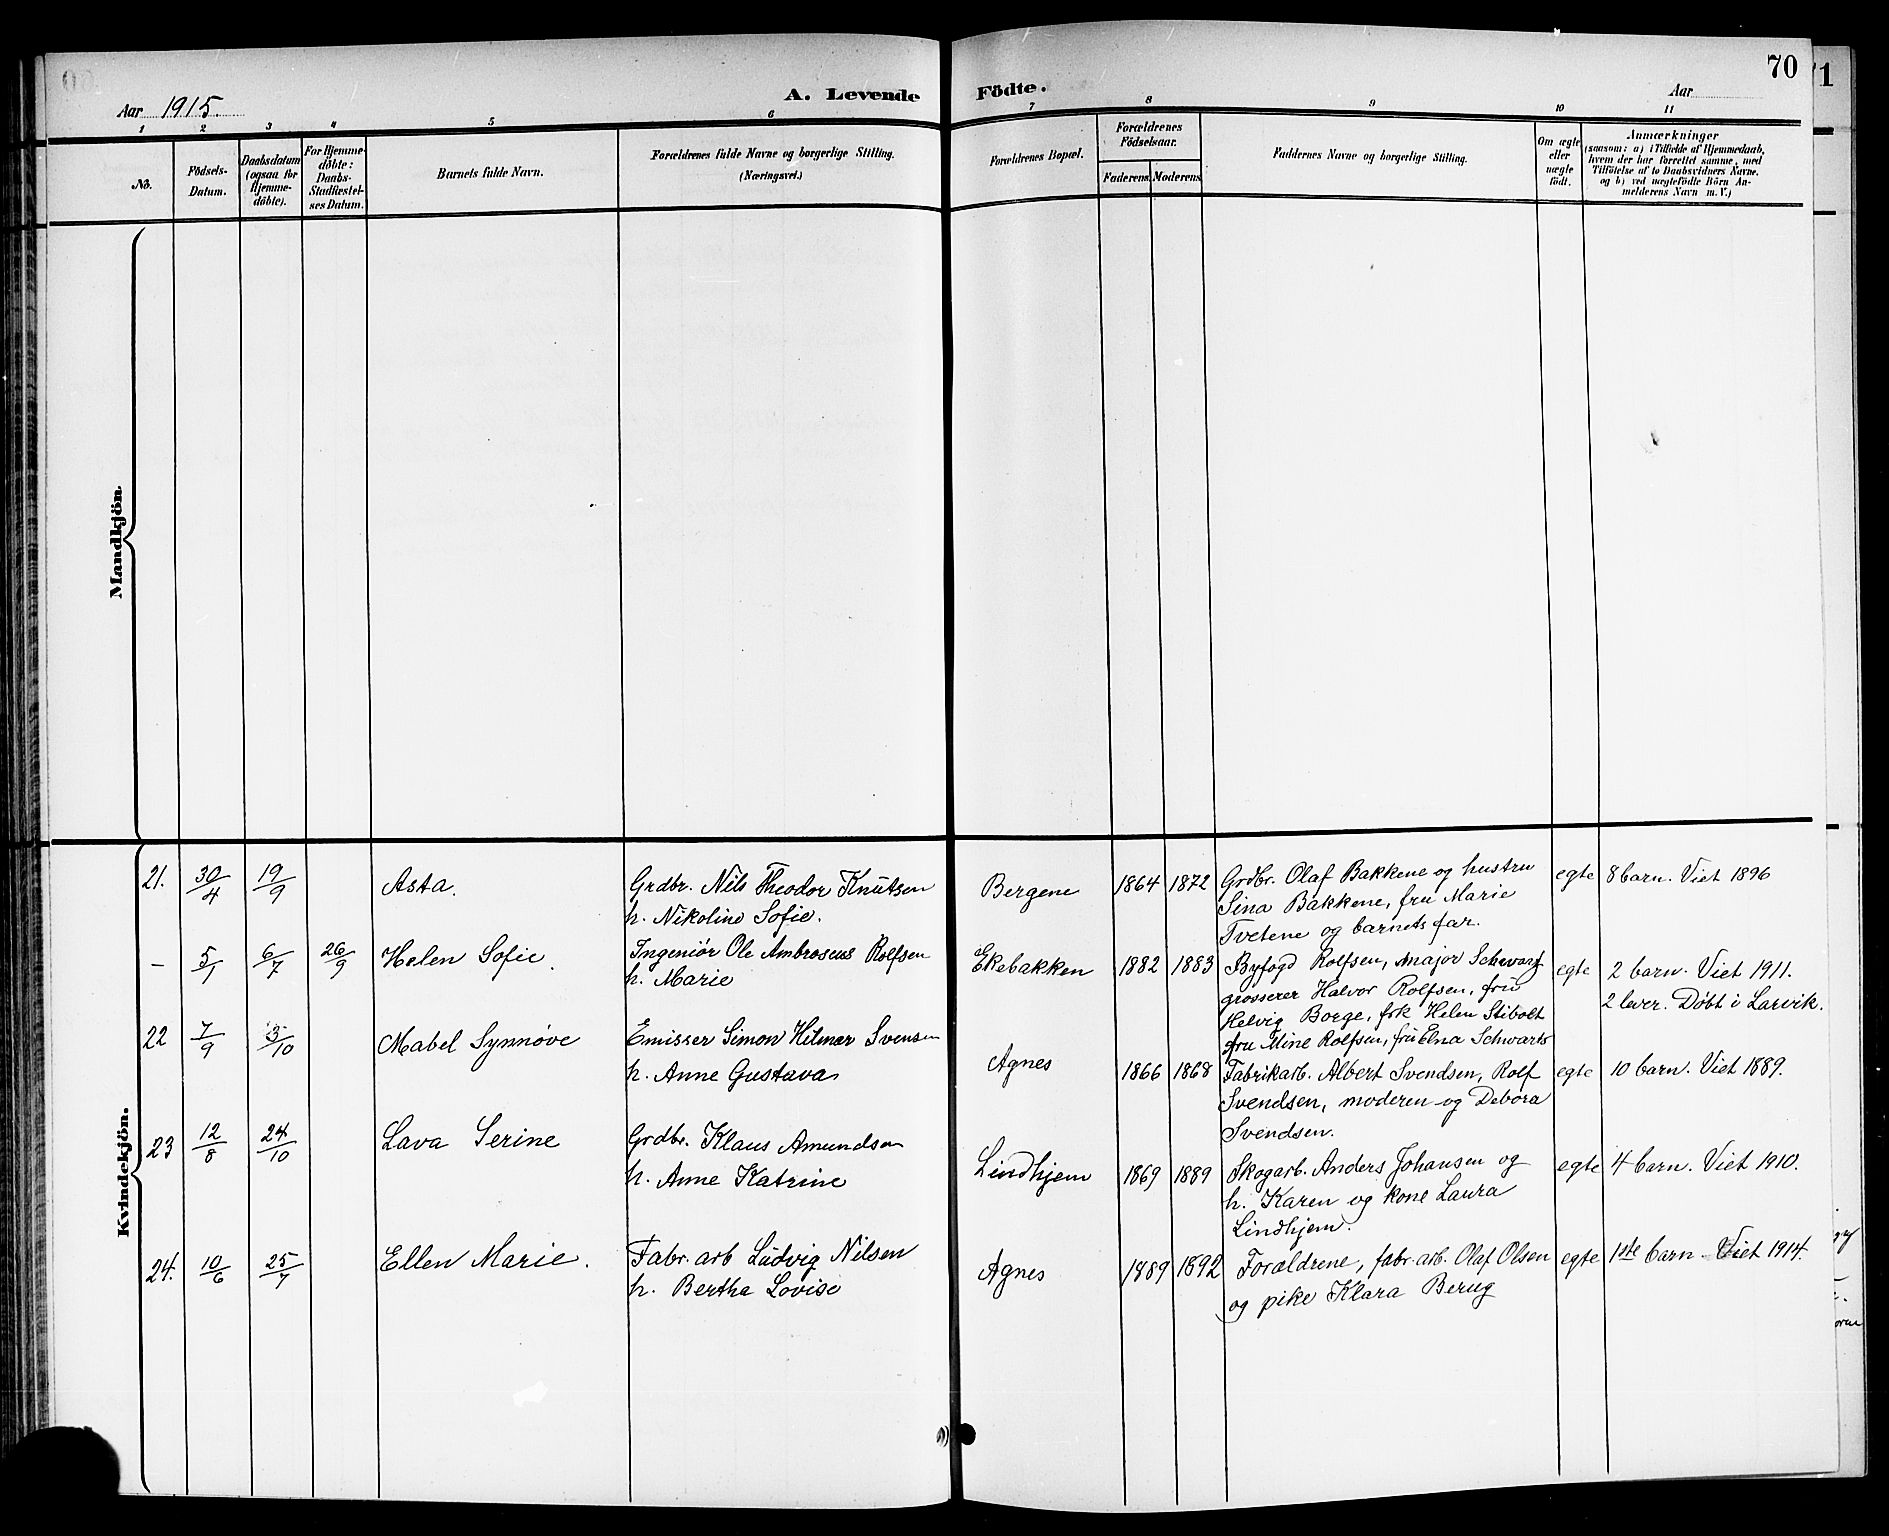 70
71
Aar 1915.
A. Levende
Födte.
Aar
1 2 3 4 5 6 7 8 9 10 11
No.
Födsels-
Datum.
Daabsdatum
(ogsaa for
Hjemme-
döbte).
For Hjemme-
döbte:
Daabs-
Stadfæstel-
ses Datum.
Barnets fulde Navn.
Forældrenes fulde Navne og borgerlige Stilling.
(Næringsvei.)
Forældrenes Bopæl.
Forældrenes
Födselsaar.
Faderens.
Moderens
Faddernes Navne og borgerlige Stilling.
Om ægte
eller
uægte
födt.
Anmærkninger
(saasom: a) i Tilfælde af Hjemmedaab,
hvem der har forrettet samme, med
Tilföielse af to Daabsvidners Navne.
og b) ved uægtefödte Börn An-
melderens Navn m. V.)
Mandkjön.
Kvindekjön.
21. 30/4 19/9 Asta. Grdbr. Nils Theodor Knutsen
h. Nikoline Sofie.
Bergene 1864 1872 Grdbr. Olaf Bakkene og hustru
Sina Bakkene, fru Marie
Tvetene og barnets far.
egte 8 barn. Viet 1896
- 5/1 6/7 26/9 Helen Sofie. Ingeniör Ole Ambrosius Rolfsen
h. Marie
Ekebakken 1882 1883 Byfogd Rolfsen, major Schwartz
grosserer Halvor Rolfsen, fru
Helvig Borge, frk Helen Stibolt
fru Mine Rolfsen, fru Elna Schwartz
egte 2 barn. Viet 1911.
2 lever. Døbt i Larvik.
22 7/9 3/10 Mabel Synnöve Emissær Simon Hilmar Svensen
h. Anne Gustava
Agnes 1866 1868 Fabrikarb. Albert Svendsen, Rolf
Svendsen, moderen og Debora
Svendsen.
egte 10 barn. Viet 1889.
23 12/8 24/10 Lava Serine Grdbr. Klaus Amundsen
h. Anne Katrine
Lindhjem 1869 1889 Skogarb. Anders Johansen og
h. Karen og kone Laura
Lindhjem.
egte 4 barn. Viet 1910.
24. 10/6 25/7 Ellen Marie. Fabr. arb Ludvig Nilsen
h. Bertha Lovise
Agnes 1889 1892 Forældrene, fabr. arb. Olaf Olsen
og pike Klara Berug
egte 1ste barn Viet 1914.